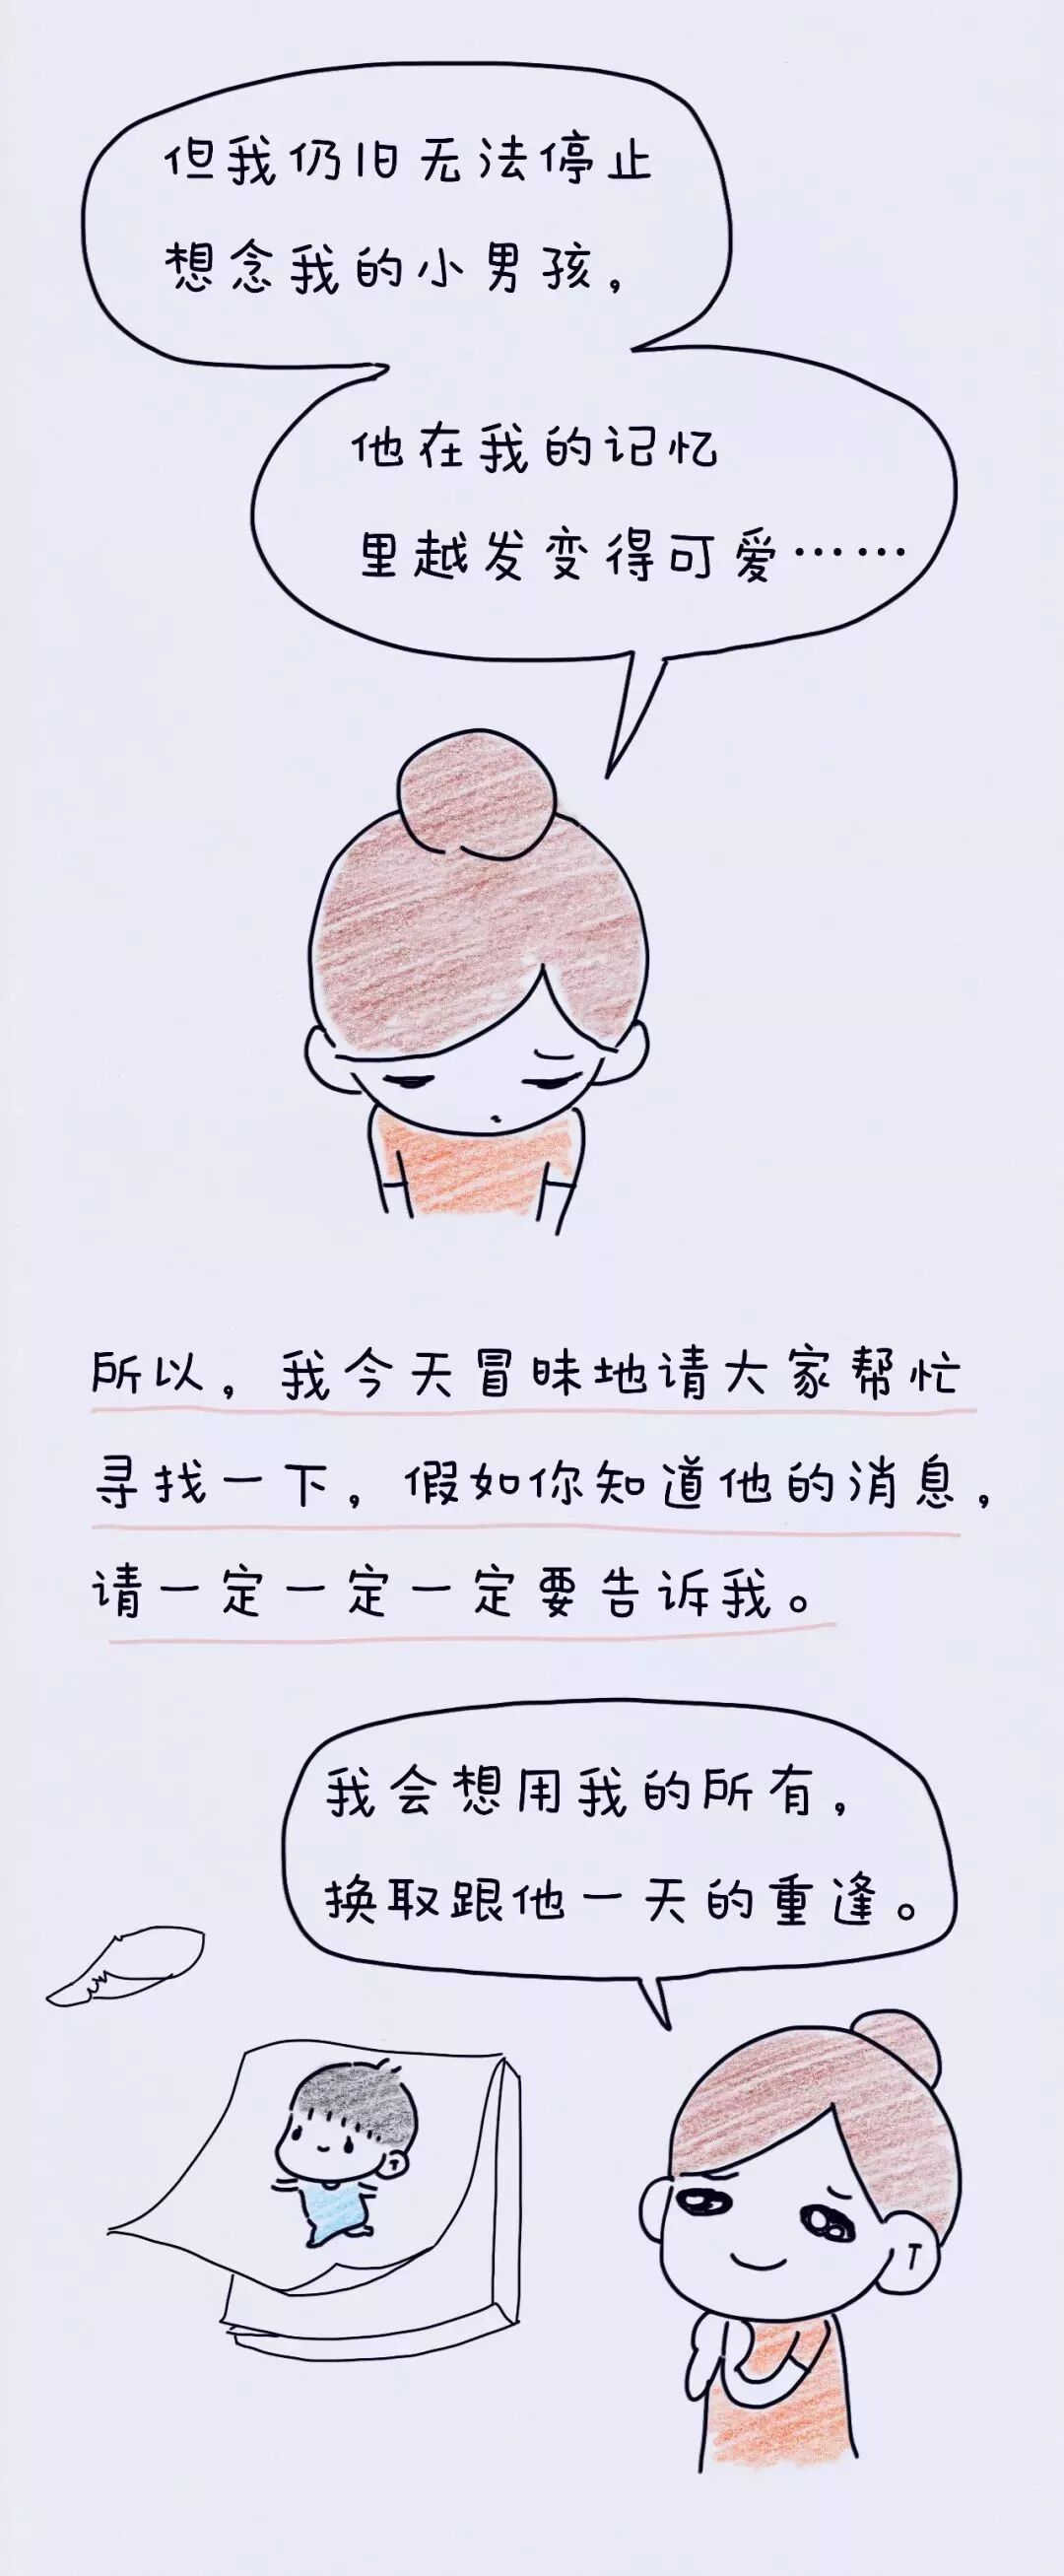 但我仍旧无法停止
想念我的小男孩，
他在我的记忆
里越发变得可爱……
所以，我今天冒昧地请大家帮忙
寻找一下，假如你知道他的消息，
请一定一定一定要告诉我。
我会想用我的所有，
换取跟他一天的重逢。